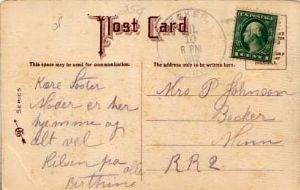 Post Card
This space may be used for communication.
The address only to be written here.
BECKER,
JUL
6 PM
SERIES
Kære Søster
Moder er her
hjemme og
alt vel
Hilsen fra alle
Berthine
Mrs P Johnson
Becker
Minn
R R 2